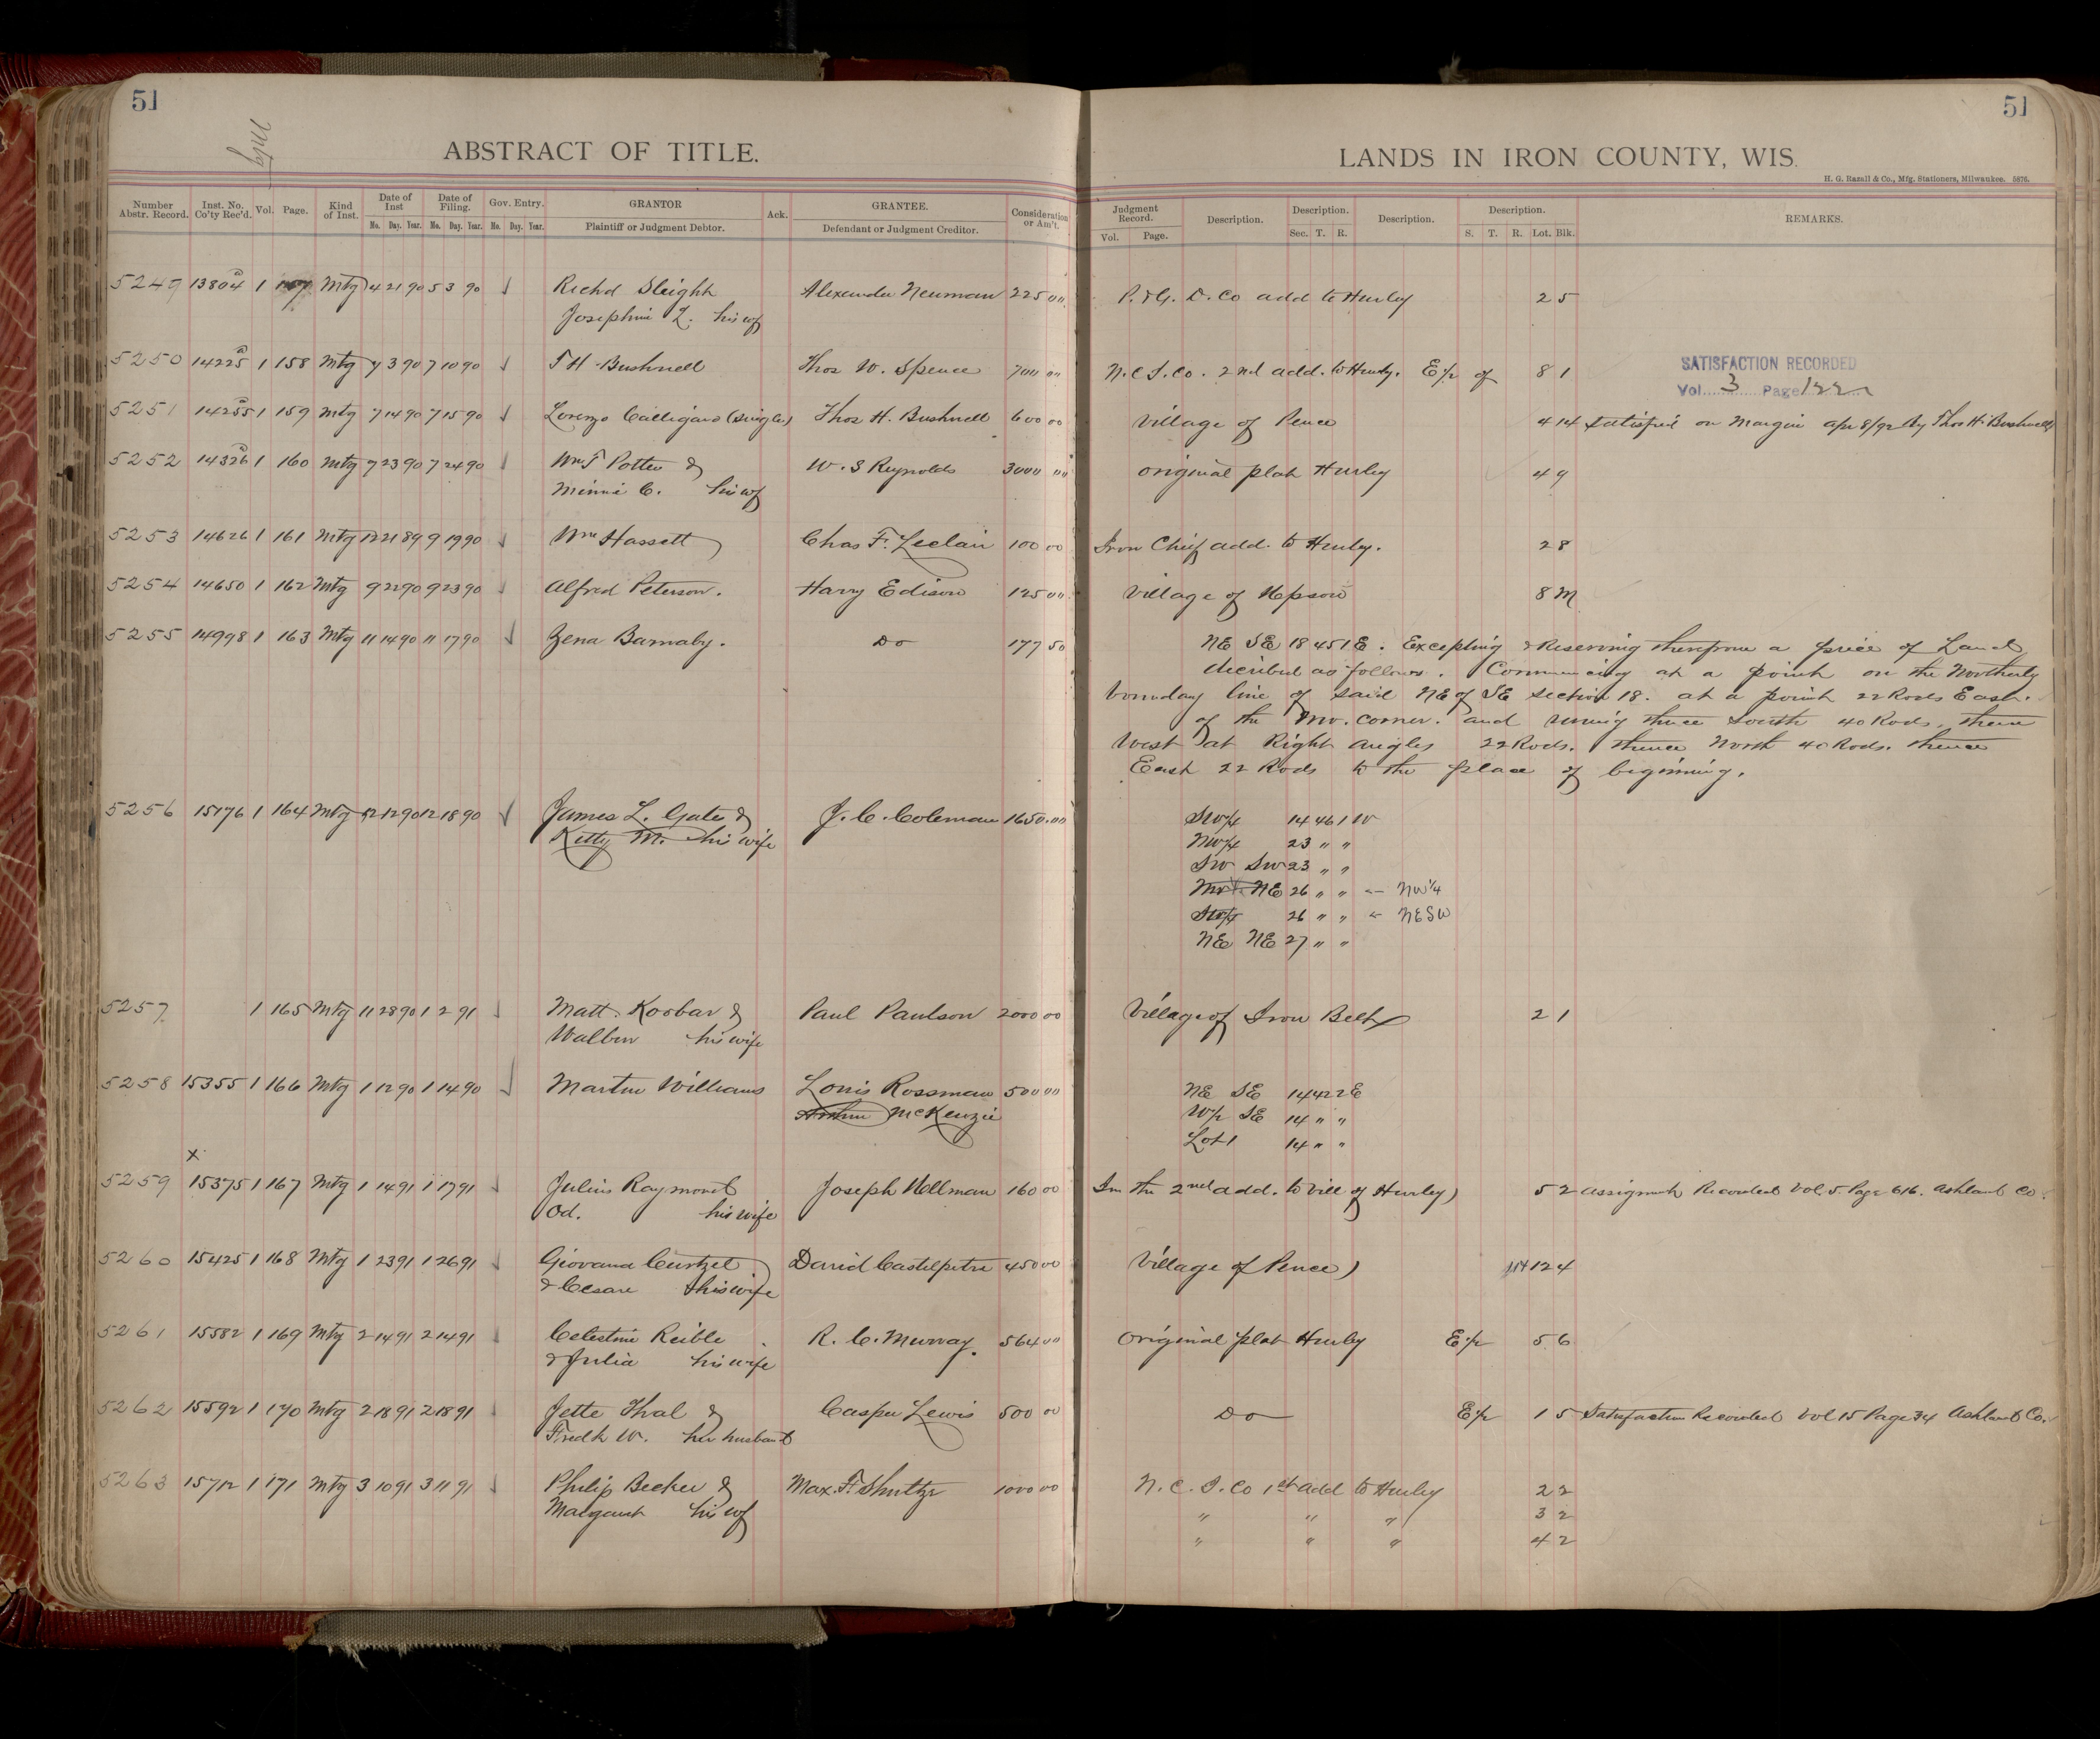 51
51
Mtg
ABSTRACT OF TITLE.
LANDS IN IRON COUNTY, WIS.
H. G. Razall & Co., Mfg. Stationers, Milwaukee. 5876.
Number Abstr. Record. Inst. No. Co'ty Rec'd. Vol. Page. Kind of Inst. Date of Inst Date of Filing. Gov. Entry. GRANTOR Ack. GRANTEE. Consideration or Am't. Judgment Record. Description. Description. Description. Description. REMARKS.
Mo. Day. Year. Mo. Day. Year. Mo. Day. Year. Plaintiff or Judgment Debtor. Defendant or Judgment Creditor. Vol. Page. Sec. T. R. S. T. R. Lot. Blk.
5249 13804 1 Mtg 4 21 90 5 3 90 Richd Sleight Alexander Neuman 225 00 P. & G. D. Co add to Hurley 2 5
Josephine L. his wf
5250 14225 1 158 Mtg 7 3 90 7 10 90 T H Bushnell Thos W. Spence 700 00 N.C.I.Co. 2nd add. to Hurley. E½ of 8 1 SATISFACTION RECORDED
Vol. 3 Page 122
5251 14255 1 159 Mtg 7 14 90 7 15 90 Lorenzo Calligaro (single) Thos H. Bushnell 600 00 Village of Pence 4 14 Satisfied on Margin Apr 8/92 by Thos H. Bushnell
5252 14326 1 160 Mtg 7 23 90 7 24 90 Wm T Potter & W. S Reynolds 3000 00 original plat Hurley 4 9
Minnie C. his wf
5253 14626 1 161 Mtg 12 21 89 9 19 90 Wm Hassett Chas F. Leclair 100 00 Iron Chief add. to Hurley. 2 8
5254 14650 1 162 Mtg 9 22 90 9 23 90 Alfred Peterson. Harry Edison 125 00 Village of Upson 8 M
5255 14998 1 163 Mtg 11 14 90 11 17 90 Zena Barnaby. Do 177 50 NE SE 18 45 1 E. Excepting & Reserving therefrom a piece of Land
described as follows. Commencing at a point on the Northerly
boundary line of said NE of SE section 18. at a point 22 Rods East.
of the NW. corner. and runing thence South 40 Rods, thence
West at Right angles 22 Rods. thence North 40 Rods. thence
East 22 Rods to the place of beginning.
5256 15176 1 164 Mtg 12 12 90 12 18 90 James L. Gates & J. C. Coleman 1650.00 SW¼ 14 46 1 W
Kitty M. his wife NW¼ 23 " "
SW SW 23 " "
NW¼ NE 26 " " ← NW¼
SW¼ 26 " " ← NESW
NE NE 27 " "
5257 1 165 Mtg 11 28 90 1 2 91 Matt. Koobar & Paul Paulson 2000 00 Village of Iron Belt 2 1
Walbur his wife
5258 15355 1 166 Mtg 1 12 90 1 14 90 Martin Williams Louis Rossman 500 00 NE SE 14 42 2 E
Arthur McKenzie W½ SE 14 " "
Lot 1 14 " "
x
5259 15375 1 167 Mtg 1 14 91 1 17 91 Julius Raymond Joseph Hollman 160 00 In the 2nd add. to Vill of Hurley 5 2 assignment Recorded Vol. 5. Page 616. Ashland Co.
Od. his wife
5260 15425 1 168 Mtg 1 23 91 1 26 91 Giovana Curtzel David Castelpetri 450 00 Village of Pence 12 4
& Cesare his wife
5261 15582 1 169 Mtg 2 14 91 2 14 91 Celestine Reible R. C. Murray. 564 00 original plat Hurley E½ 5 6
& Julia his wife
5262 15592 1 170 Mtg 2 18 91 2 18 91 Jette Thal & Casper Lewis 500 00 Do E½ 1 5 Satisfaction Recorded Vol 15 Page 34 Ashland Co.
Fredk W. her husband
5263 15712 1 171 Mtg 3 10 91 3 11 91 Philip Becker & Max. F. Shultze 1000 00 N. C. I. Co 1st add to Hurley 2 2
Margaret his wf " " " 3 2
" " " 4 2